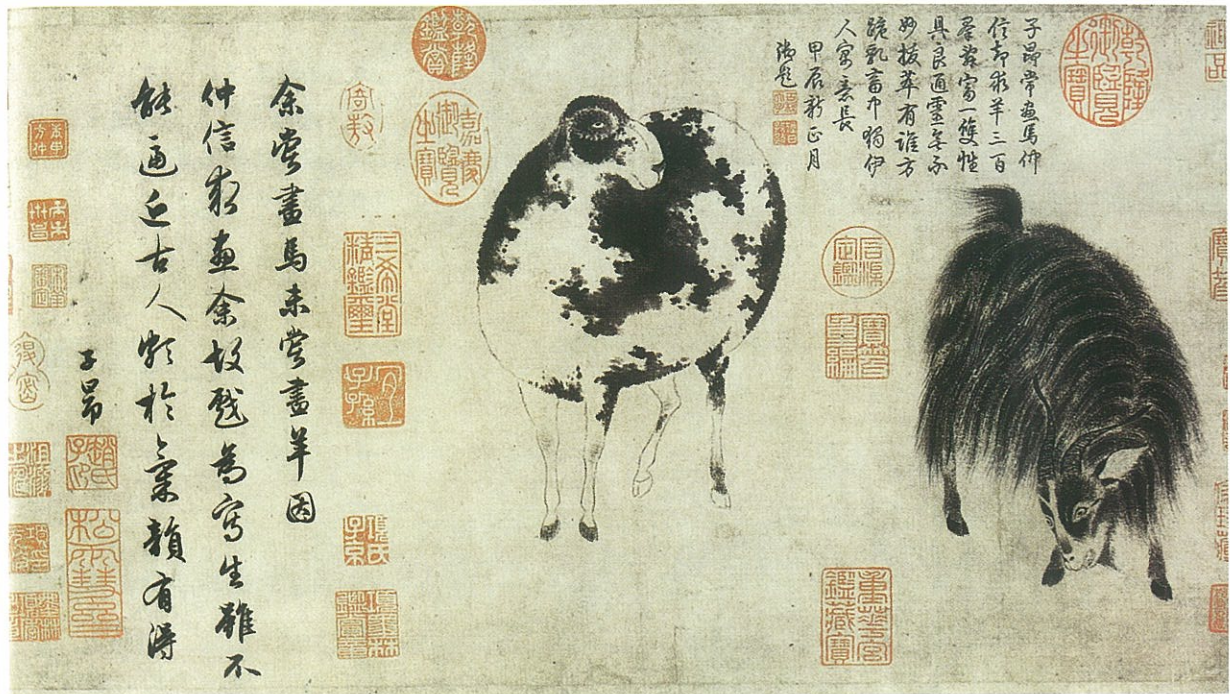 乾隆御覽之寶
子昂常畫馬仲
信却求羊三百
羣辭寫一雙性
具良通靈無不
妙拔萃有誰方
跪乳畜中獨伊
人寓意長
甲辰新正月
御題
石渠定鑑
寶笈重編
重華宮鑑藏寶
乾隆鑑賞
嘉慶御覽之寶
三希堂精鑑璽
宜子孫
項氏子京
余嘗畫馬未嘗畫羊因
仲信求畫余故戲為寫生雖不
能逼近古人頗於氣韻有得
子昂
趙氏子昂